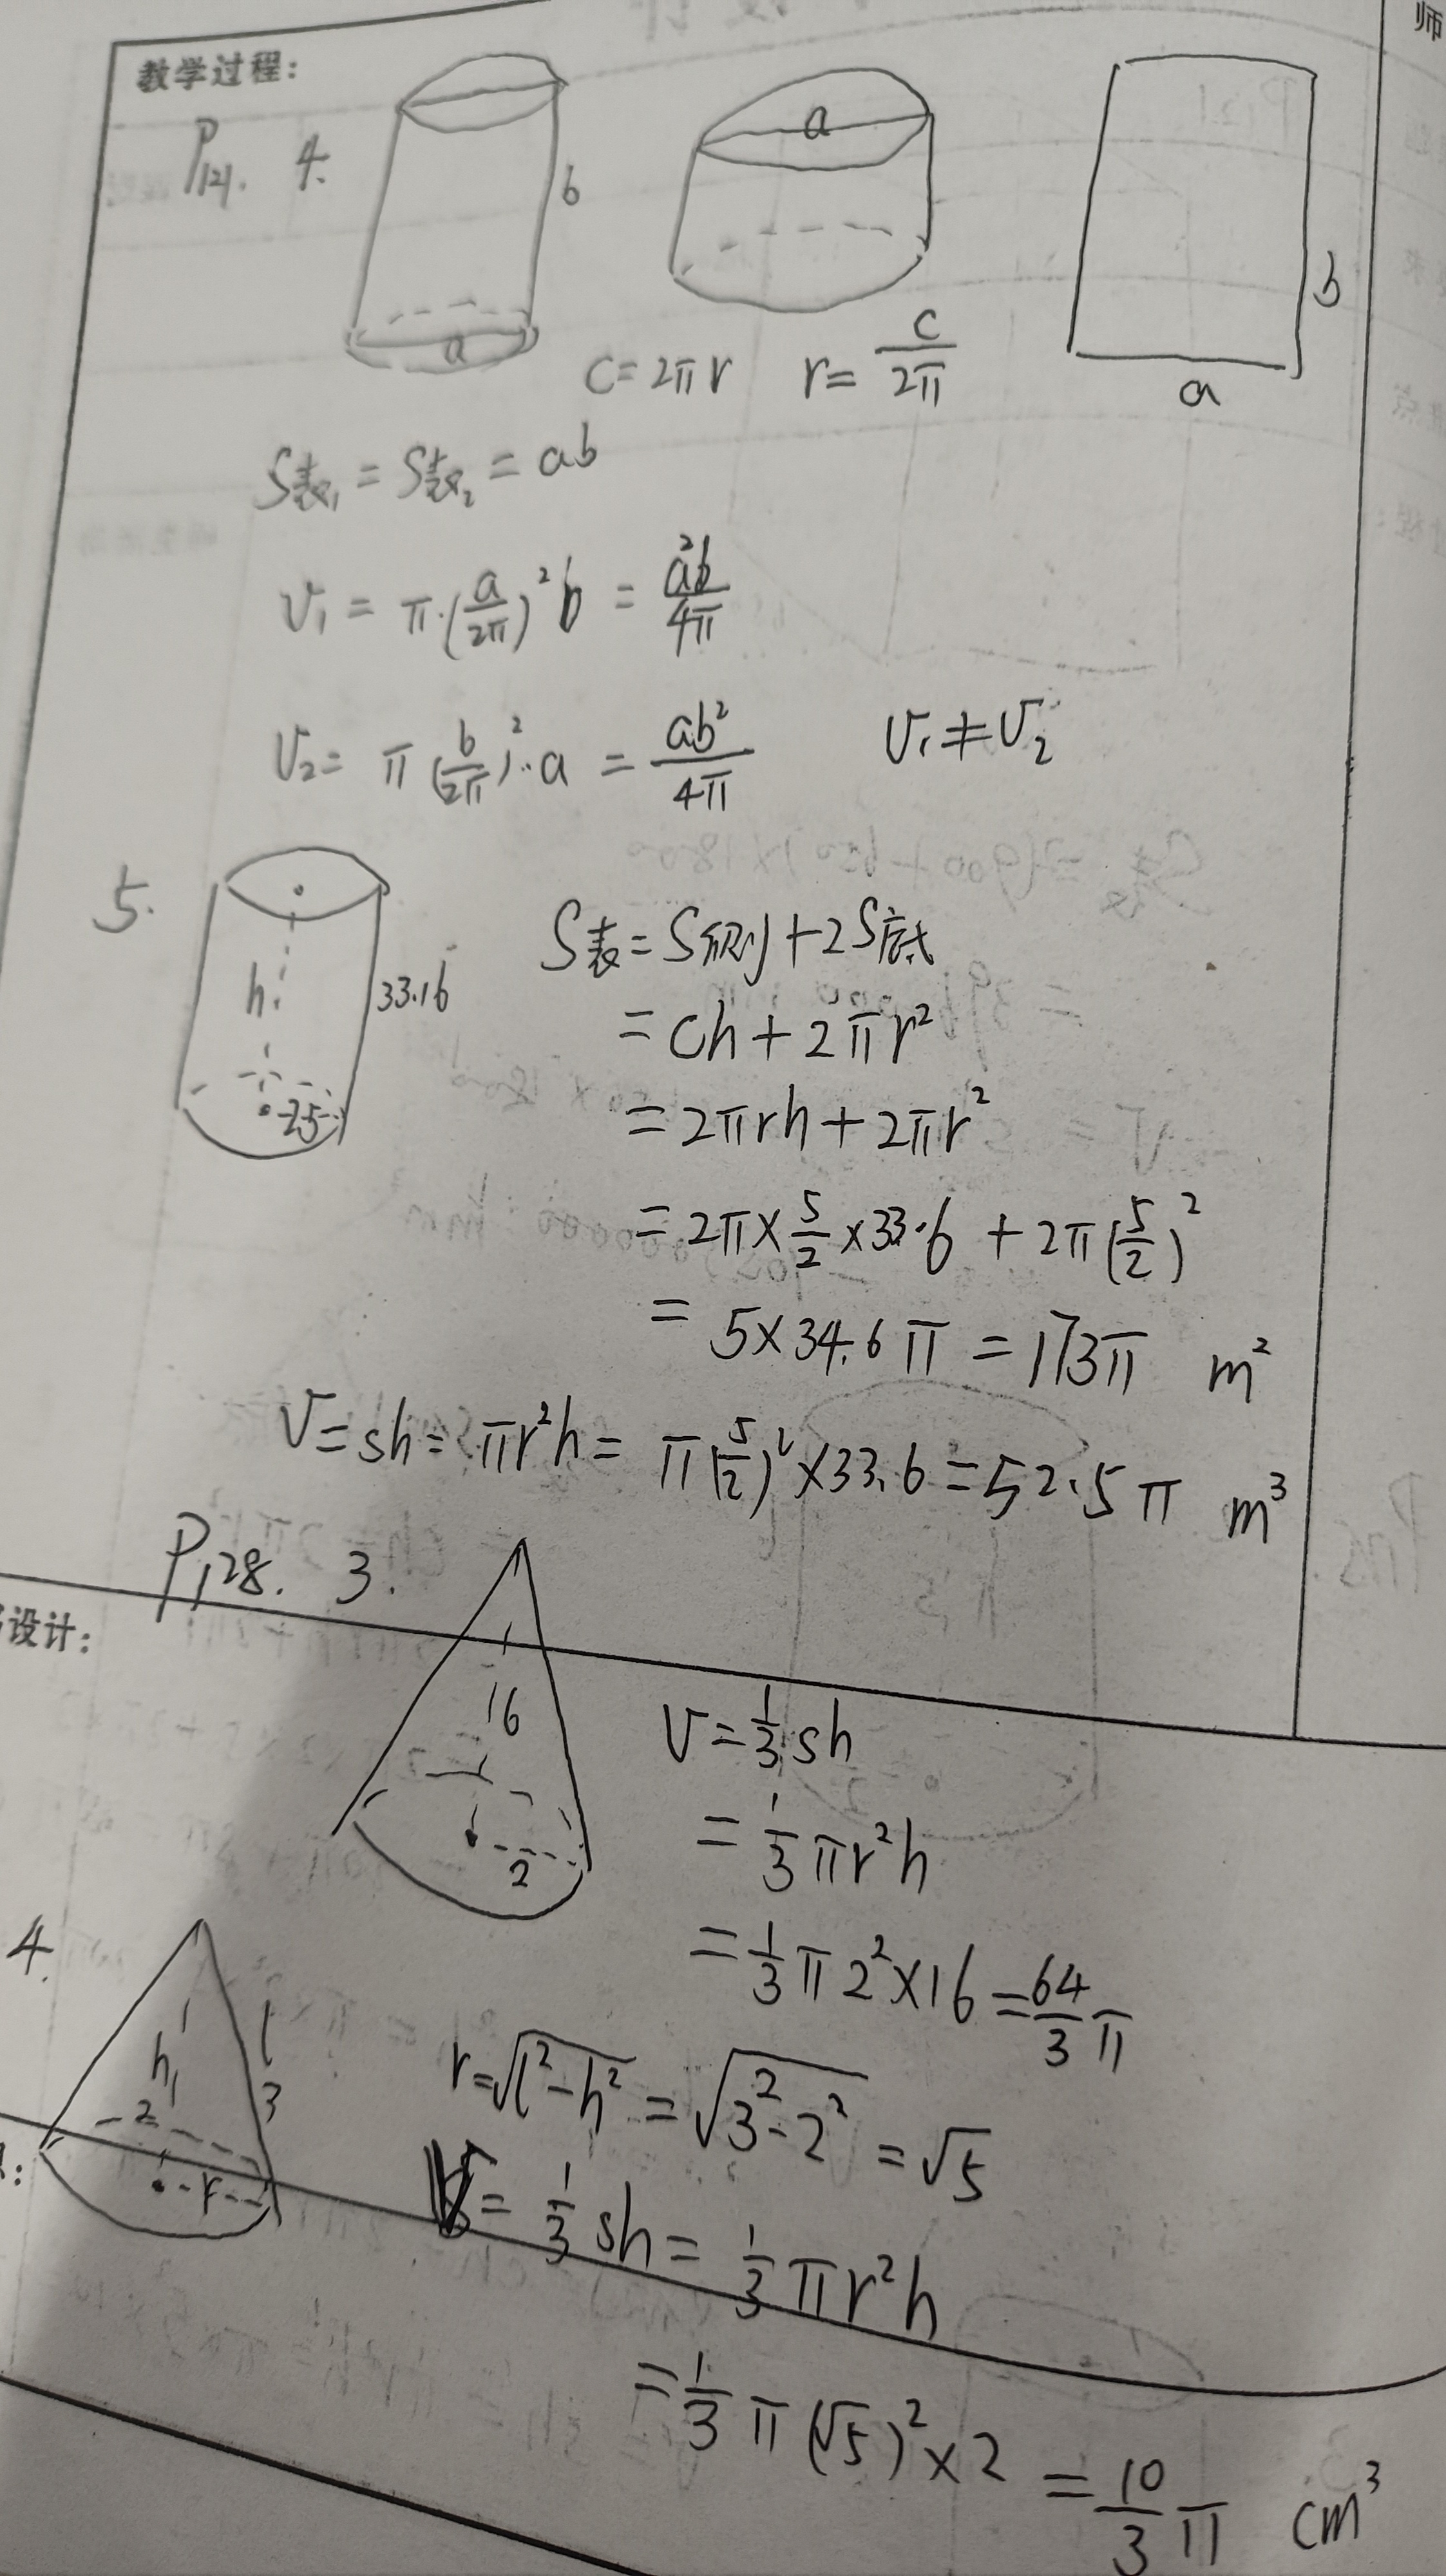 师
教学过程:
P121. 4.
b
a
a
b
a
C=2πr r=C/2π
S表₁=S表₂=ab
V₁=π·(a/2π)²b=a²b/4π
V₂=π(b/2π)²·a=ab²/4π V₁≠V₂
5.
h
33.16
25
S表=S侧+2S底
=Ch+2πr²
=2πrh+2πr²
=2π×5/2×33.6+2π(5/2)²
=5×34.6π=173π m²
V=sh=πr²h=π(5/2)²×33.6=52.5π m³
P128. 3.
设计:
16
2
V=1/3sh
=1/3πr²h
=1/3π2²×16=64/3π
4.
h
l
2
3
r
r=√(l²-h²)=√(3²-2²)=√5
V=1/3sh=1/3πr²h
=1/3π(√5)²×2=10/3π cm³